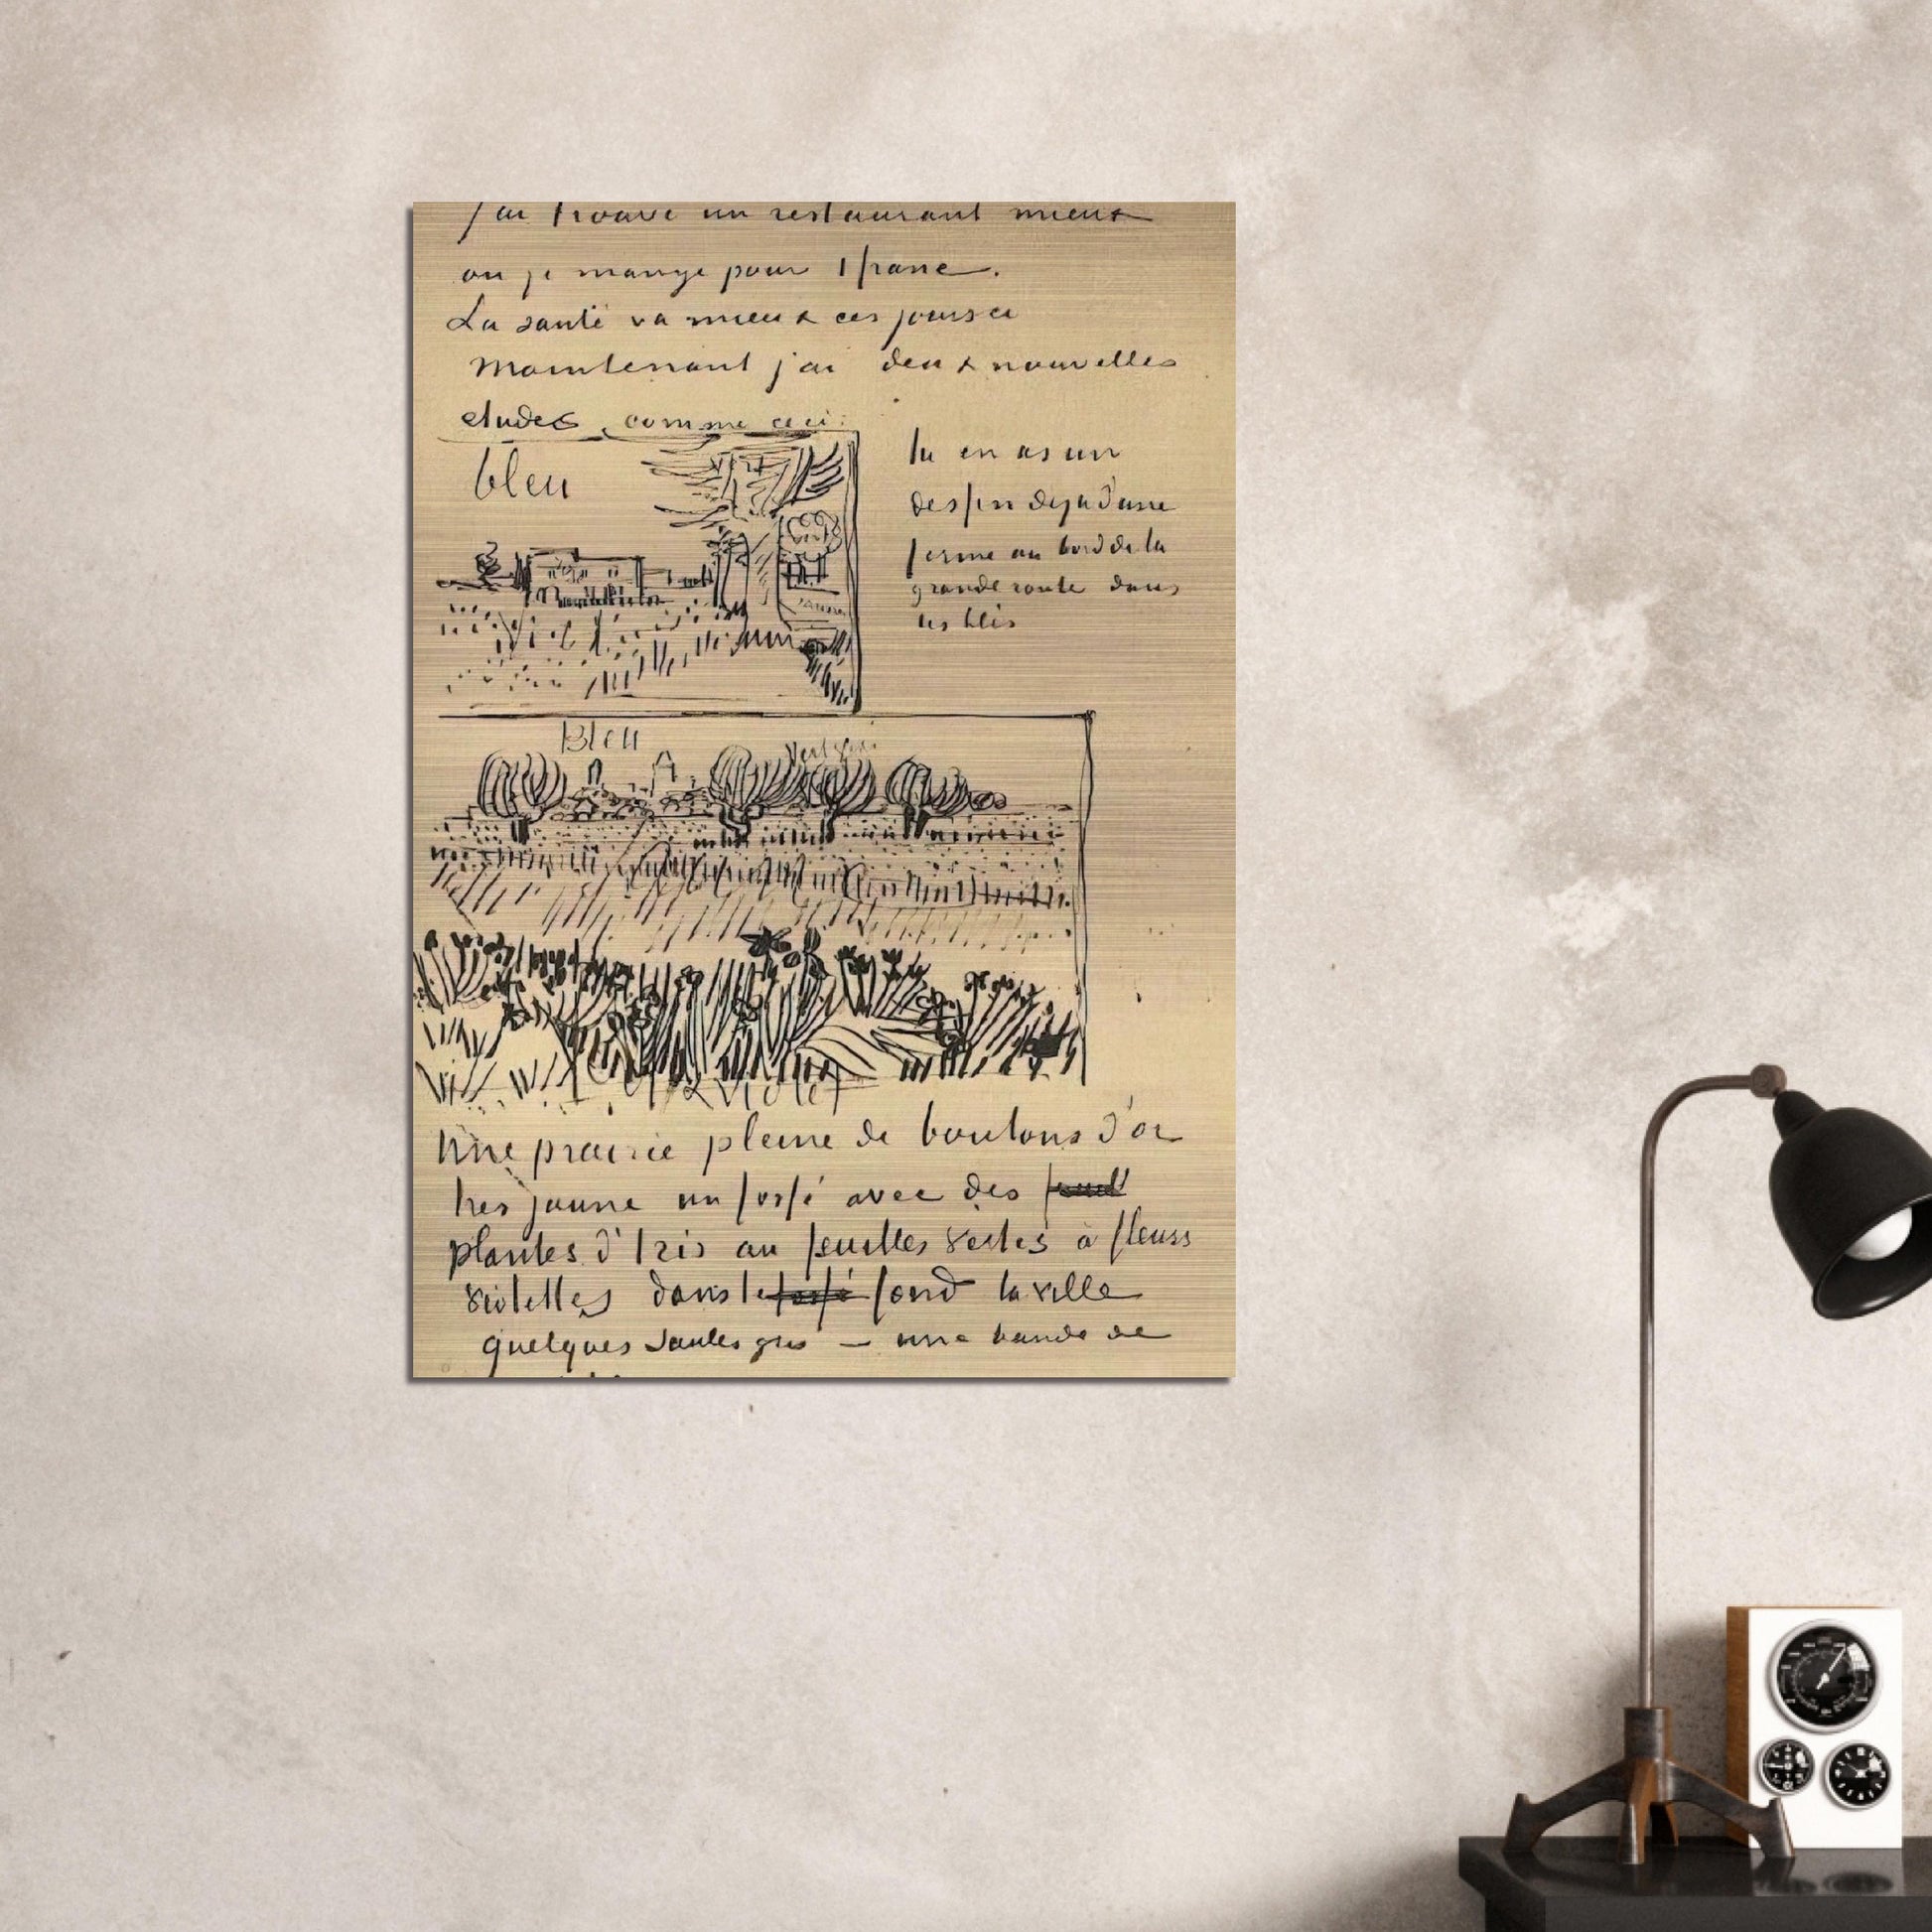 j'ai trouvé un restaurant mieux
ou je mange pour 1 franc.
La santé va mieux ces jours ci
Maintenant j'ai deux nouvelles
etudes, comme ceci:
bleu
tu en as un
dessin deja d'une
ferme au bord de la
grande route dans
les blés
jaune
Bleu
vert
violet
Une prairie pleine de boutons d'or
tres jaune un fossé avec des
plantes d'Iris au feuilles vertes à fleurs
violettes dans le fossé fond la ville
quelques saules gris — une bande de